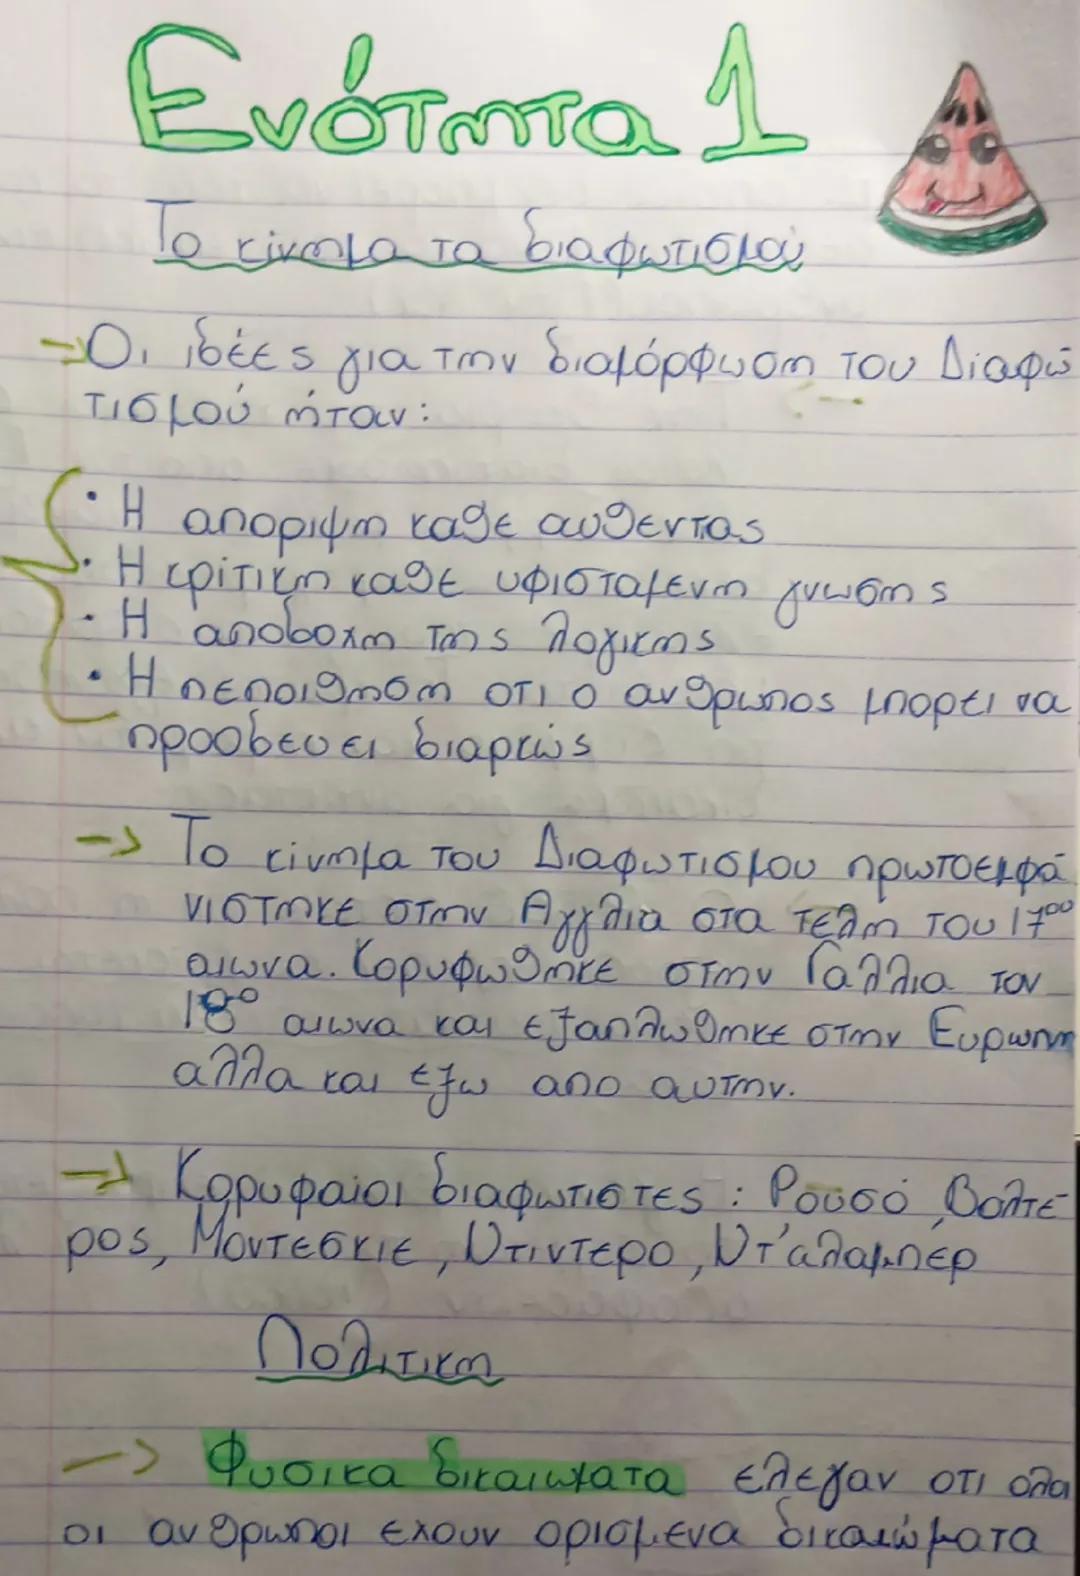 Ενότητα 1
Το κίνημα τα διαφωτισμού
→Οι ιδέες για την διαμόρφωση του Διαφω
τισμού ήταν:
· Η αποριψη καθε αυθεντιας
· Η κρίτικη καθε υφισταμενη γνωσης
· Η αποδοχη της λογικης
· Η πεποιθηση οτι ο ανθρωπος μπορει να
προοδευει διαρκώς
→ Το κίνημα του Διαφωτισμου πρωτοεμφά
νιστηκε στην Αγγλια στα τελη του 17ου
αιωνα. Κορυφωθηκε στην Γαλλια τον
18ο αιωνα και εξαπλωθηκε στην Ευρωπη
αλλα και εξω απο αυτην.
→ Κορυφαιοι διαφωτιστες : Ρουσό, Βολτέ
ρος, Μοντεσκιε, Ντιντερο, Ντ'αλαμπέρ
Πολιτικη
→ Φυσικα δικαιωματα ελεγαν οτι ολα
οι ανθρωποι εχουν ορισμενα δικαιώματα